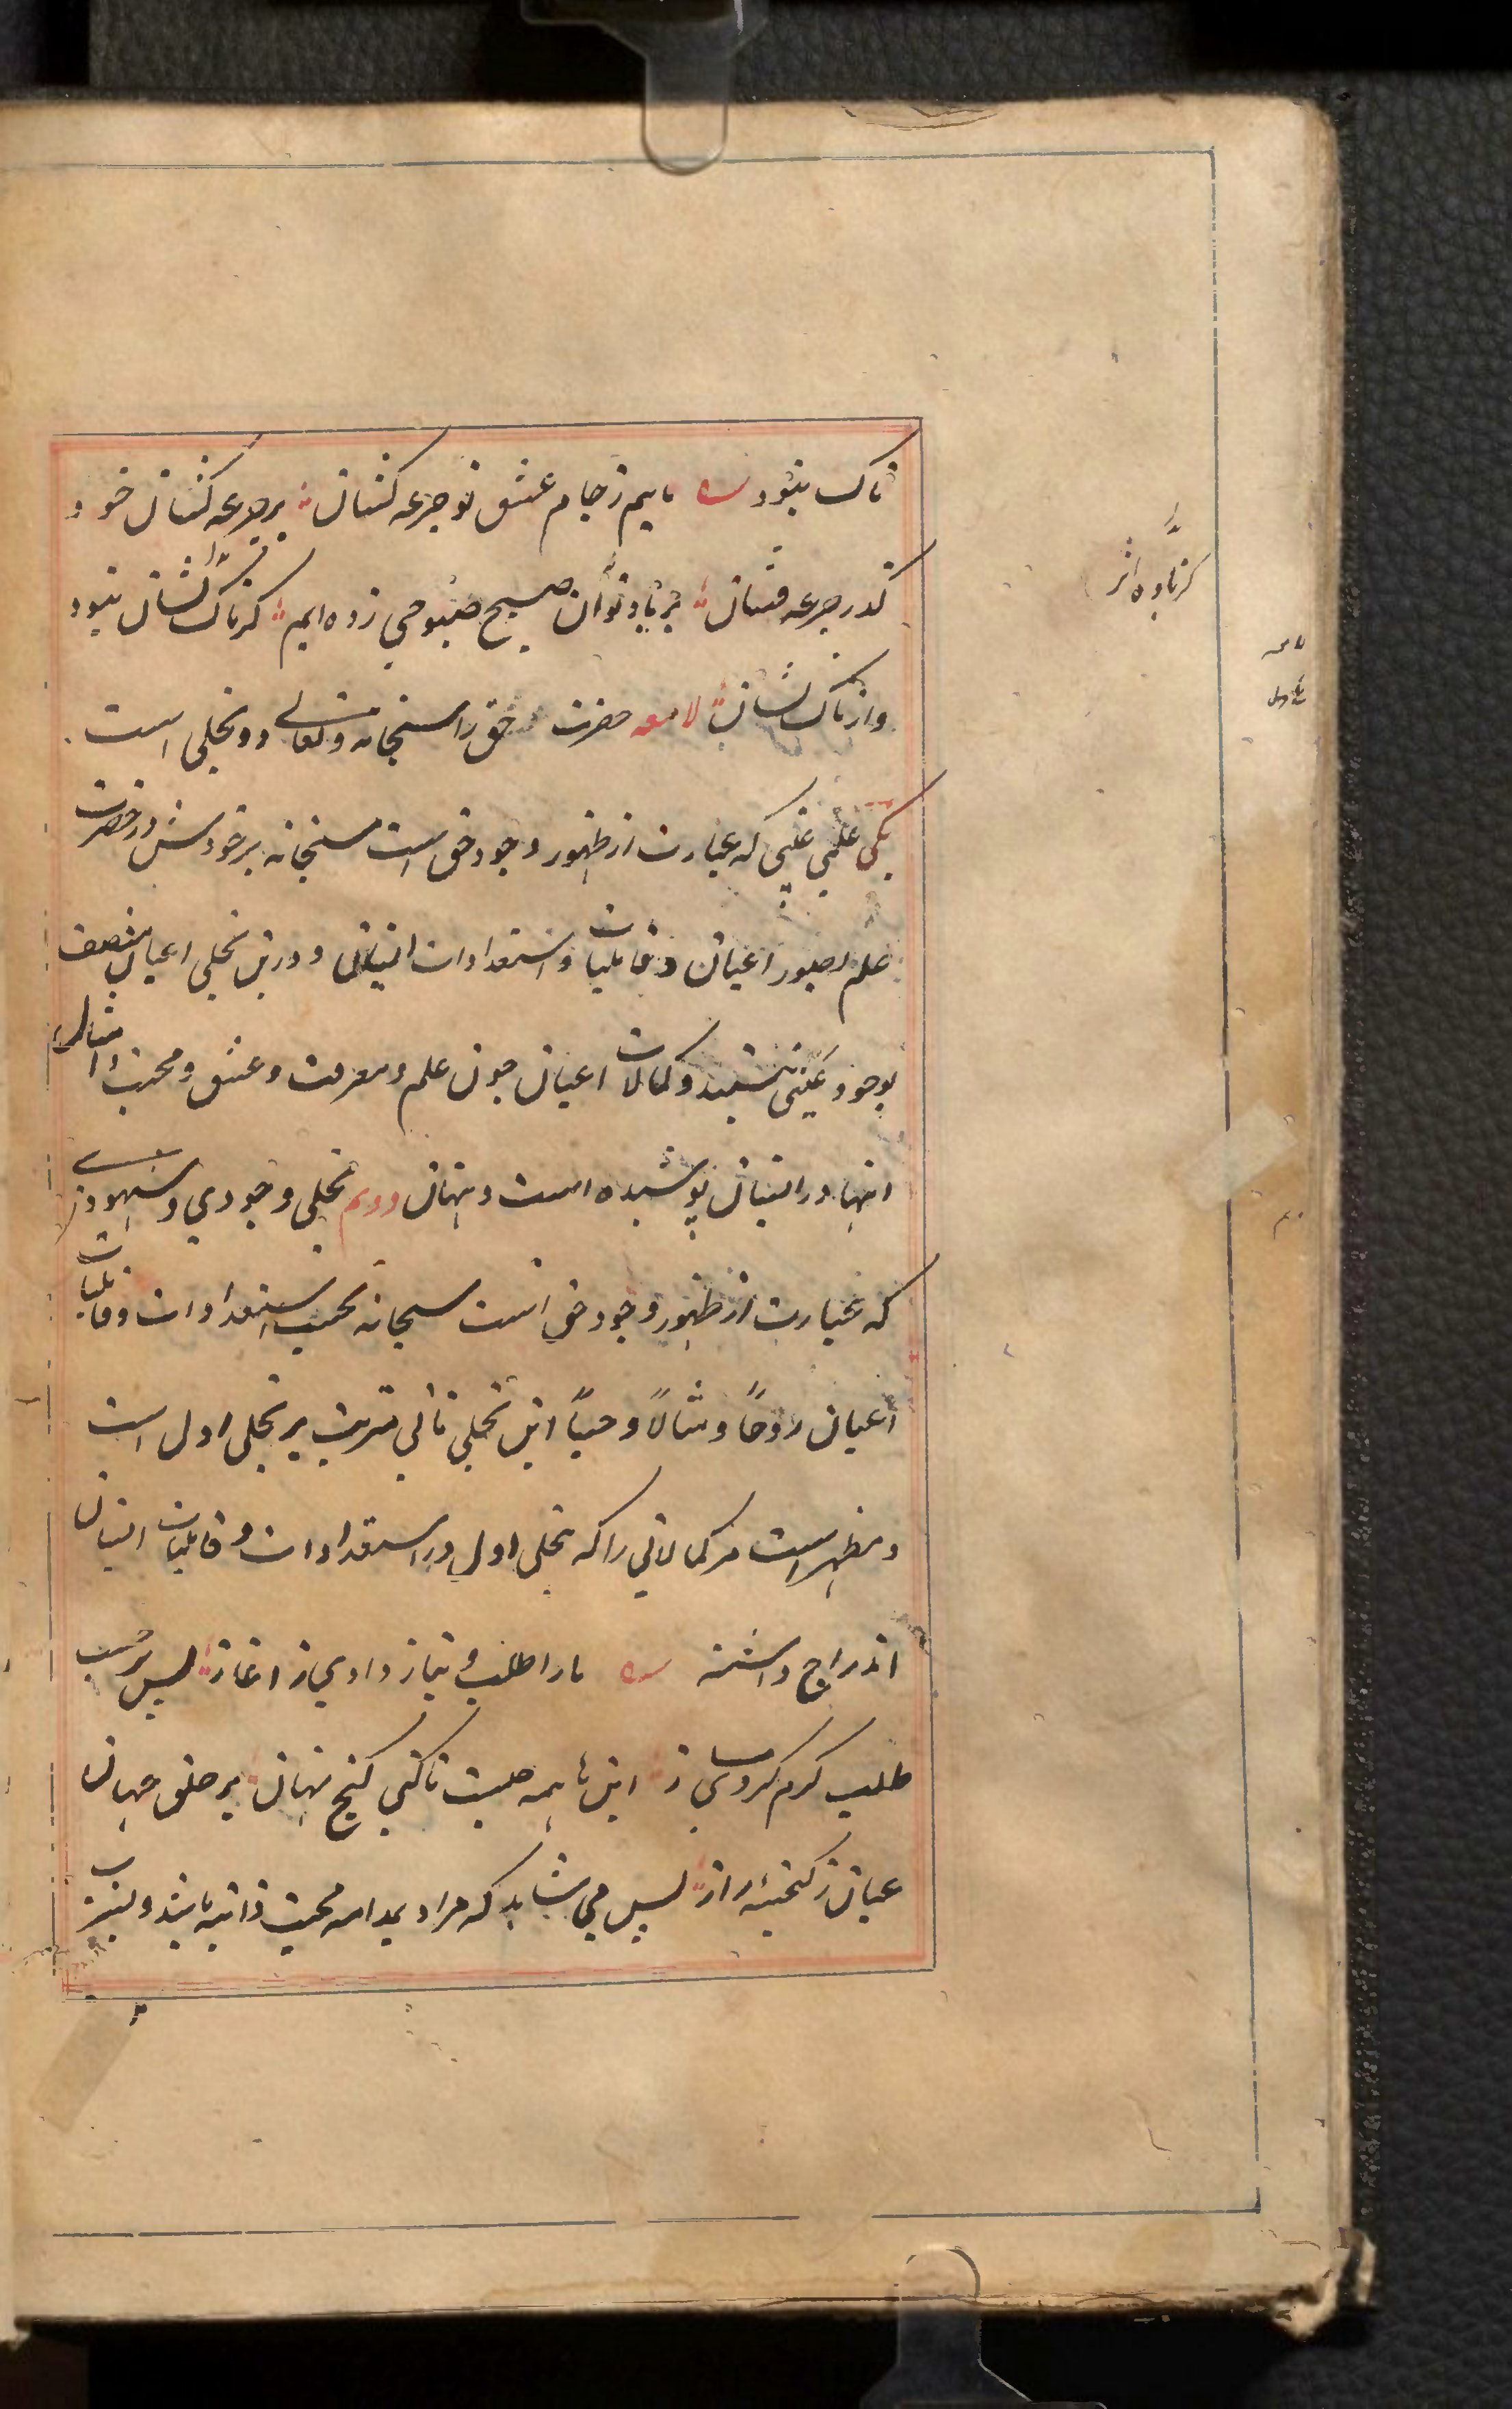 تاک نبود مائیم ز جام عشق تو جرعه کشان بر جرعه کشان خود
گذر جرعه فشان بر یاد تو آن صبح صبوحی زده ایم کز تاک نشان نبود
و از تاک نشان لامعه حضرت حق را سبحانه و تعالی دو تجلی است
یکی علمی غیبی که عبارت از ظهور وجود حق است سبحانه بر خودش در حضرت
علم بصور اعیان و قابلیات و استعدادات ایشان و درین تجلی اعیان متصف
بوجود عینی نیستند و کمالات اعیان چون علم و معرفت و عشق و محبت و امثال
اینها در ایشان پوشیده است و پنهان دویم تجلی وجودی و شهودی
که عبارت از ظهور وجود حق است سبحانه بحسب استعدادات و قابلیات
اعیان روحاً و مثالاً و حساً این تجلی ثانی مترتب بر تجلی اول است
و مظهر است مر کمالاتی را که تجلی اول در استعدادات و قابلیات ایشان
اندراج داشته ما را طلب و نیاز دادی ز آغاز پس بر حسب
طلب کرم کردی ساز این ها همه چیست تا کنی گنج نهان بر خلق جهان
عیان ز گنجینه راز پس می شاید که مراد بمدامه محبت ذاتیه باشد و بشرب